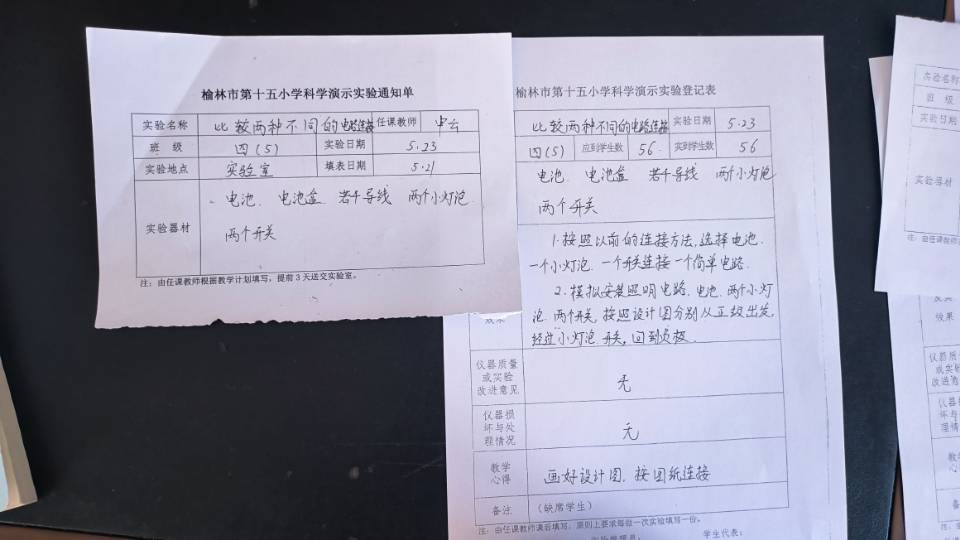 榆林市第十五小学科学演示实验通知单
实验名称 比较两种不同的电路连接 任课教师
班 级 四(5) 实验日期 5.23
实验地点 实验室 填表日期 5.21
实验器材 电池. 电池盒. 若干导线 两个小灯泡
两个开关
注：由任课教师根据教学计划填写，提前3天送交实验室。
榆林市第十五小学科学演示实验登记表
比较两种不同的电路连接 实验日期 5.23
四(5) 应到学生数 56. 实到学生数 56
电池. 电池盒 若干导线 两个小灯泡
两个开关
1.按照以前的连接方法,选择电池.
一个小灯泡. 一个开关连接一个简单电路.
2.模拟安装照明电路. 电池. 两个小灯
泡. 两个开关, 按照设计图分别从正极出发,
经过小灯泡. 开关, 回到负极.
效果
仪器质量
或实验
改进意见
无
仪器损
坏与处
理情况
无
教学
心得
画好设计图. 按图纸连接
备注 (缺席学生)
注：由任课教师课后填写，原则上要求每做一次实验填写一份。
学生代表：
实验名称
班 级
实验日期
实验器材
效果